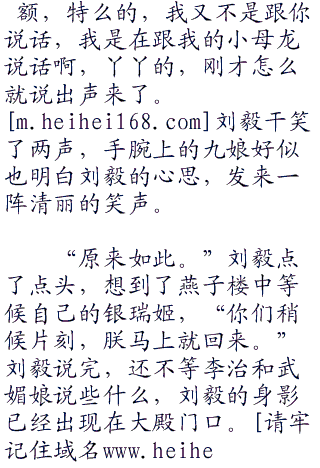 额，特么的，我又不是跟你
说话，我是在跟我的小母龙
说话啊，丫丫的，刚才怎么
就说出声来了。
[m.heihei168.com]刘毅干笑
了两声，手腕上的九娘好似
也明白刘毅的心思，发来一
阵清丽的笑声。
“原来如此。”刘毅点
了点头，想到了燕子楼中等
候自己的银瑞姬，“你们稍
候片刻，朕马上就回来。”
刘毅说完，还不等李治和武
媚娘说些什么，刘毅的身影
已经出现在大殿门口。[请牢
记住域名www.heihe